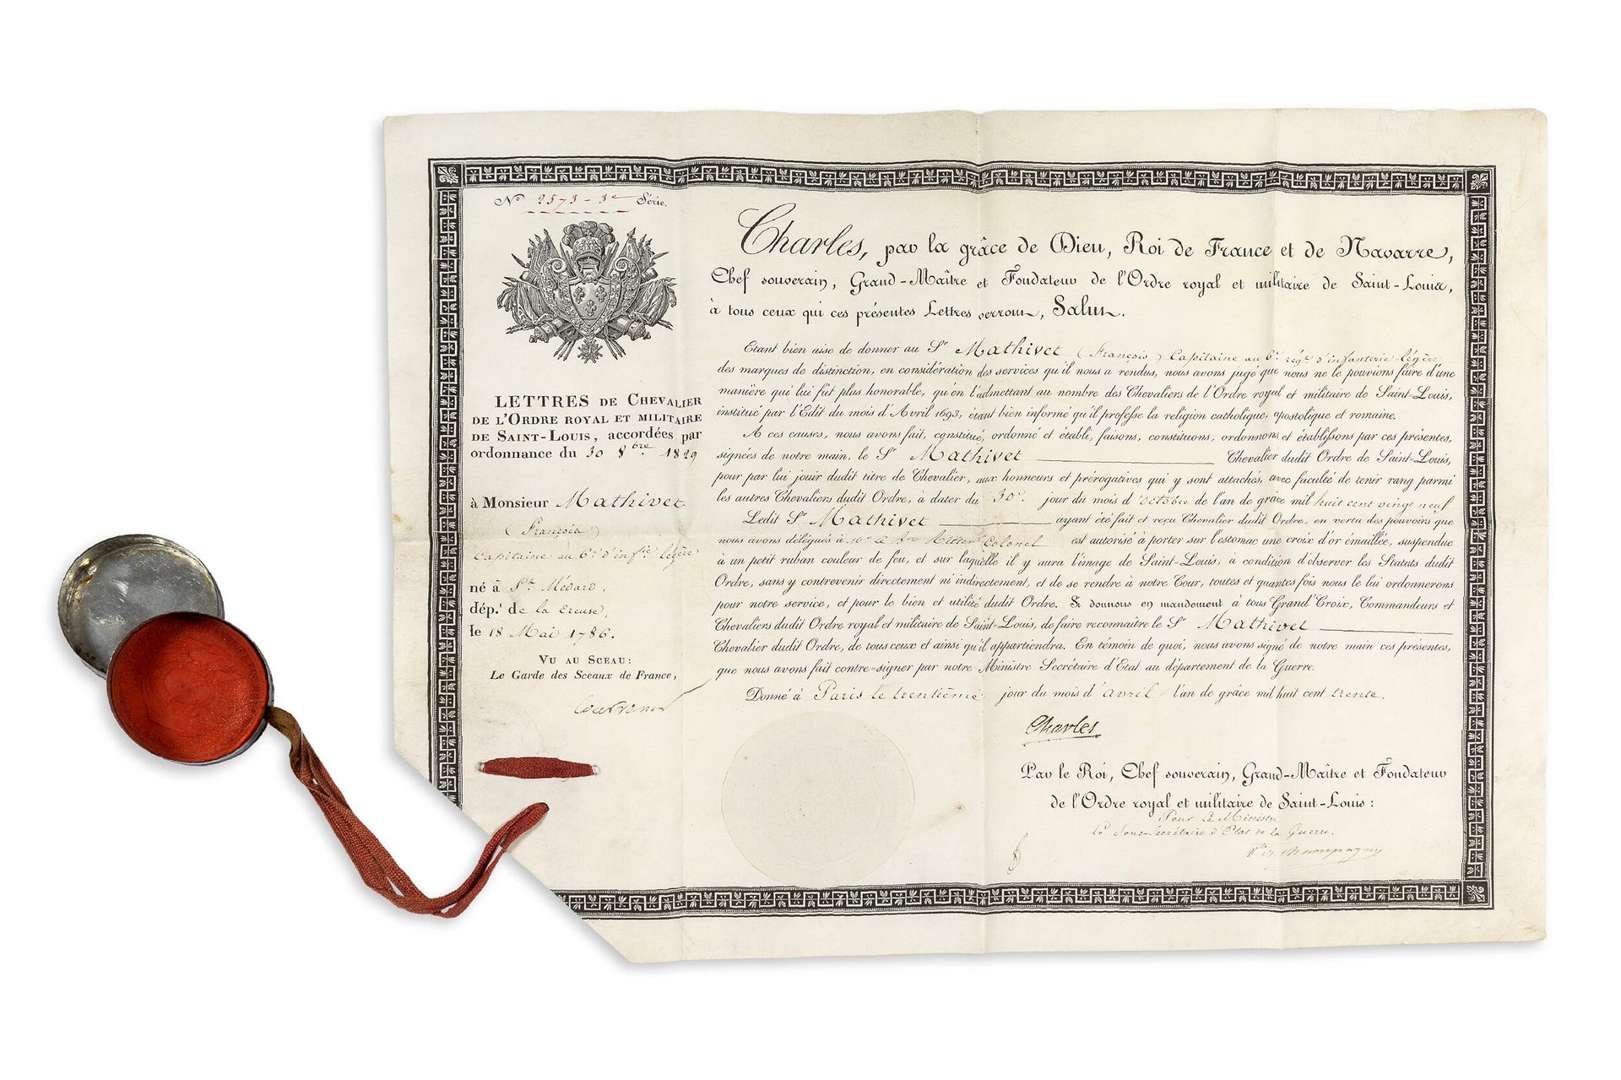 Nº 2573 - 3e Série.
LETTRES DE CHEVALIER
DE L'ORDRE ROYAL ET MILITAIRE
DE SAINT-LOUIS, accordées par
ordonnance du 30 8bre 1829
à Monsieur Mathivet
(François)
Capitaine au 6e d'infie légère
né à St Médard,
dép.t de la Creuse,
le 18 Mai 1786.
VU AU SCEAU:
Le Garde des Sceaux de France,
Charles, par la grâce de Dieu, Roi de France et de Navarre,
Chef souverain, Grand-Maître et Fondateur de l'Ordre royal et militaire de Saint-Louis,
à tous ceux qui ces présentes Lettres verront, Salut.
Etant bien aise de donner au Sr Mathivet (François) Capitaine au 6e régt d'infanterie légère
des marques de distinction, en considération des services qu'il nous a rendus, nous avons jugé que nous ne le pouvions faire d'une
manière qui lui fût plus honorable, qu'en l'admettant au nombre des Chevaliers de l'Ordre royal et militaire de Saint-Louis,
institué par l'Edit du mois d'Avril 1693, étant bien informé qu'il professe la religion catholique, apostolique et romaine.
A ces causes, nous avons fait, constitué, ordonné et établi, faisons, constituons, ordonnons et établissons par ces présentes,
signées de notre main, le Sr Mathivet Chevalier dudit Ordre de Saint-Louis,
pour par lui jouir dudit titre de Chevalier, aux honneurs et prérogatives qui y sont attachés, avec faculté de tenir rang parmi
les autres Chevaliers dudit Ordre, à dater du 30e jour du mois d'octobre de l'an de grâce mil huit cent vingt neuf
Ledit Sr Mathivet ayant été fait et reçu Chevalier dudit Ordre, en vertu des pouvoirs que
nous avons délégués à Colonel est autorisé à porter sur l'estomac une croix d'or émaillée, suspendue
à un petit ruban couleur de feu, et sur laquelle il y aura l'image de Saint-Louis, à condition d'observer les Statuts dudit
Ordre, sans y contrevenir directement ni indirectement, et de se rendre à notre Cour, toutes et quantes fois nous le lui ordonnerons
pour notre service, et pour le bien et utilité dudit Ordre. Si donnons en mandement à tous Grand'Croix, Commandeurs et
Chevaliers dudit Ordre royal et militaire de Saint-Louis, de faire reconnaître le Sr Mathivet
Chevalier dudit Ordre, de tous ceux et ainsi qu'il appartiendra. En témoin de quoi, nous avons signé de notre main ces présentes,
que nous avons fait contre-signer par notre Ministre Secrétaire d'Etat au département de la Guerre.
Donné à Paris le trentième jour du mois d'avril l'an de grâce mil huit cent trente.
Charles
Par le Roi, Chef souverain, Grand-Maître et Fondateur
de l'Ordre royal et militaire de Saint-Louis:
Pour le Ministre
le Sous-Secrétaire d'Etat de la Guerre.
Vte de Champagny